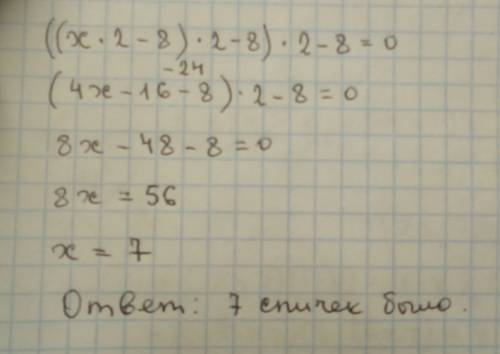 ((x · 2 - 8) · 2 - 8) · 2 - 8 = 0
-24
(4x - 16 - 8) · 2 - 8 = 0
8x - 48 - 8 = 0
8x = 56
x = 7
Ответ: 7 спичек было.